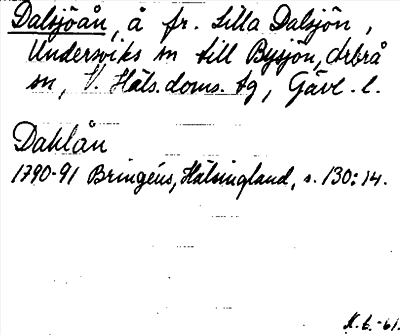 Dalsjöån, å fr. Lilla Dalsjön,
Undersviks sn till Bysjön, Arbrå
sn, V. Häls. doms. tg, Gävl. l.
Daklån
1790-91 Bringéus, Hälsingland, s. 130: 14.
N. 6. -61.